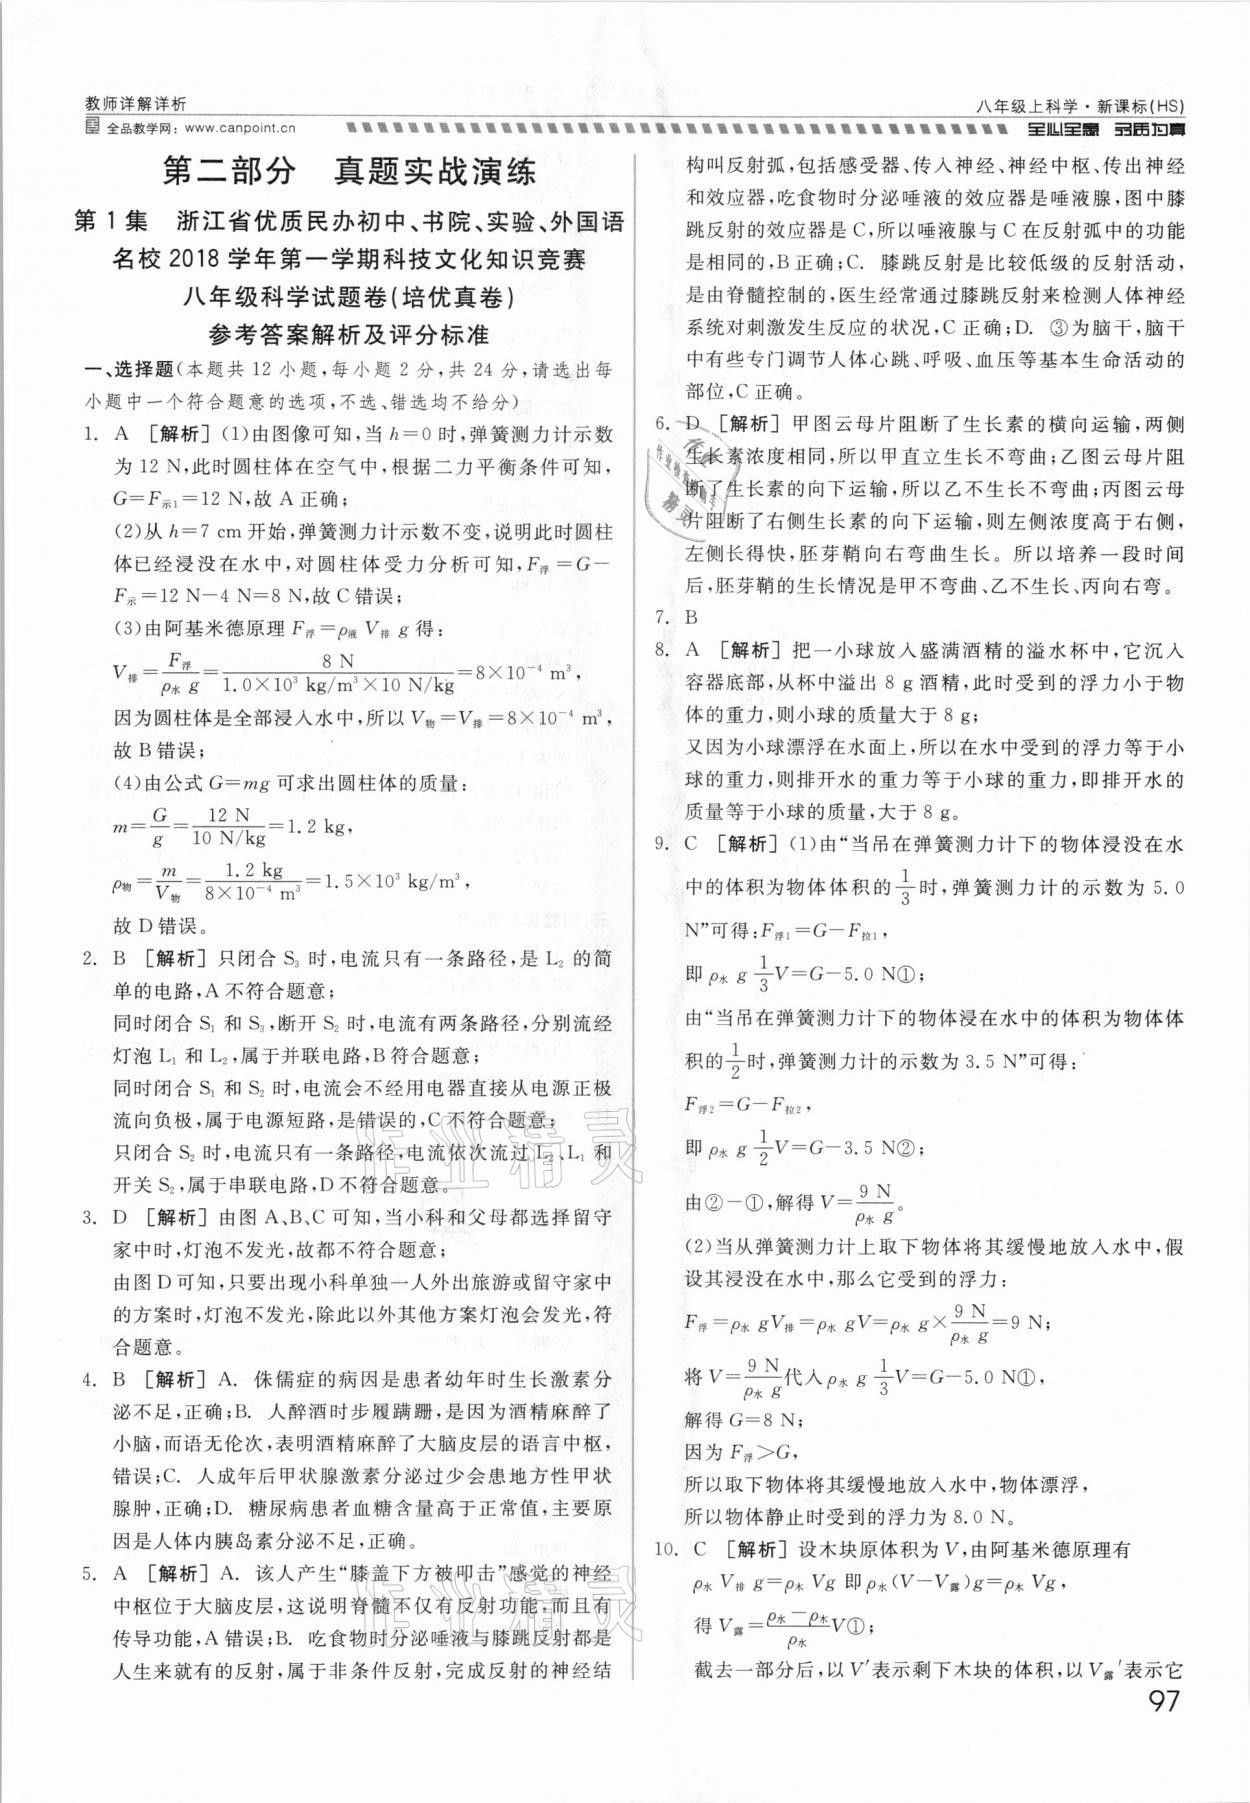 教师详解详析
八年级上科学·新课标(HS)
全品教学网：www.canpoint.cn
全心全意 名质为真
第二部分 真题实战演练
第1集 浙江省优质民办初中、书院、实验、外国语
名校2018学年第一学期科技文化知识竞赛
八年级科学试题卷(培优真卷)
参考答案解析及评分标准
一、选择题(本题共12小题,每小题2分,共24分,请选出每
小题中一个符合题意的选项,不选、错选均不给分)
1. A [解析](1)由图像可知,当h=0时,弹簧测力计示数
为12 N,此时圆柱体在空气中,根据二力平衡条件可知,
G=F示1=12 N,故A正确;
(2)从h=7 cm开始,弹簧测力计示数不变,说明此时圆柱
体已经浸没在水中,对圆柱体受力分析可知,F浮=G-
F示=12 N-4 N=8 N,故C错误;
(3)由阿基米德原理F浮=ρ液 V排 g得:
V排=F浮/ρ水 g=8 N/1.0×10³ kg/m³×10 N/kg=8×10⁻⁴ m³,
因为圆柱体是全部浸入水中,所以V物=V排=8×10⁻⁴ m³,
故B错误;
(4)由公式G=mg可求出圆柱体的质量:
m=G/g=12 N/10 N/kg=1.2 kg,
ρ物=m/V物=1.2 kg/8×10⁻⁴ m³=1.5×10³ kg/m³,
故D错误。
2. B [解析]只闭合S₃时,电流只有一条路径,是L₂的简
单的电路,A不符合题意;
同时闭合S₁和S₃,断开S₂时,电流有两条路径,分别流经
灯泡L₁和L₂,属于并联电路,B符合题意;
同时闭合S₁和S₂时,电流会不经用电器直接从电源正极
流向负极,属于电源短路,是错误的,C不符合题意;
只闭合S₂时,电流只有一条路径,电流依次流过L₂、L₁和
开关S₂,属于串联电路,D不符合题意。
3. D [解析]由图A、B、C可知,当小科和父母都选择留守
家中时,灯泡不发光,故都不符合题意;
由图D可知,只要出现小科单独一人外出旅游或留守家中
的方案时,灯泡不发光,除此以外其他方案灯泡会发光,符
合题意。
4. B [解析]A. 侏儒症的病因是患者幼年时生长激素分
泌不足,正确;B. 人醉酒时步履蹒跚,是因为酒精麻醉了
小脑,而语无伦次,表明酒精麻醉了大脑皮层的语言中枢,
错误;C. 人成年后甲状腺激素分泌过少会患地方性甲状
腺肿,正确;D. 糖尿病患者血糖含量高于正常值,主要原
因是人体内胰岛素分泌不足,正确。
5. A [解析]A. 该人产生“膝盖下方被叩击”感觉的神经
中枢位于大脑皮层,这说明脊髓不仅有反射功能,而且有
传导功能,A错误;B. 吃食物时分泌唾液与膝跳反射都是
人生来就有的反射,属于非条件反射,完成反射的神经结
构叫反射弧,包括感受器、传入神经、神经中枢、传出神经
和效应器,吃食物时分泌唾液的效应器是唾液腺,图中膝
跳反射的效应器是C,所以唾液腺与C在反射弧中的功能
是相同的,B正确;C. 膝跳反射是比较低级的反射活动,
是由脊髓控制的,医生经常通过膝跳反射来检测人体神经
系统对刺激发生反应的状况,C正确;D. ③为脑干,脑干
中有些专门调节人体心跳、呼吸、血压等基本生命活动的
部位,C正确。
6. D [解析]甲图云母片阻断了生长素的横向运输,两侧
生长素浓度相同,所以甲直立生长不弯曲;乙图云母片阻
断了生长素的向下运输,所以乙不生长不弯曲;丙图云母
片阻断了右侧生长素的向下运输,则左侧浓度高于右侧,
左侧长得快,胚芽鞘向右弯曲生长。所以培养一段时间
后,胚芽鞘的生长情况是甲不弯曲、乙不生长、丙向右弯。
7. B
8. A [解析]把一小球放入盛满酒精的溢水杯中,它沉入
容器底部,从杯中溢出8 g酒精,此时受到的浮力小于物
体的重力,则小球的质量大于8 g;
又因为小球漂浮在水面上,所以在水中受到的浮力等于小
球的重力,则排开水的重力等于小球的重力,即排开水的
质量等于小球的质量,大于8 g。
9. C [解析](1)由“当吊在弹簧测力计下的物体浸没在水
中的体积为物体体积的1/3时,弹簧测力计的示数为5.0
N”可得:F浮1=G-F拉1,
即ρ水 g 1/3 V=G-5.0 N①;
由“当吊在弹簧测力计下的物体浸在水中的体积为物体体
积的1/2时,弹簧测力计的示数为3.5 N”可得:
F浮2=G-F拉2,
即ρ水 g 1/2 V=G-3.5 N②;
由②-①,解得V=9 N/ρ水 g。
(2)当从弹簧测力计上取下物体将其缓慢地放入水中,假
设其浸没在水中,那么它受到的浮力:
F浮=ρ水 gV排=ρ水 gV=ρ水 g×9 N/ρ水 g=9 N;
将V=9 N/ρ水 g代入ρ水 g 1/3 V=G-5.0 N①,
解得G=8 N;
因为F浮>G,
所以取下物体将其缓慢地放入水中,物体漂浮,
所以物体静止时受到的浮力为8.0 N。
10. C [解析]设木块原体积为V,由阿基米德原理有
ρ水 V排 g=ρ木 Vg即ρ水(V-V露)g=ρ木 Vg,
得V露=ρ水-ρ木/ρ水 V①;
截去一部分后,以V′表示剩下木块的体积,以V露′表示它
97
作业精灵
作业精灵